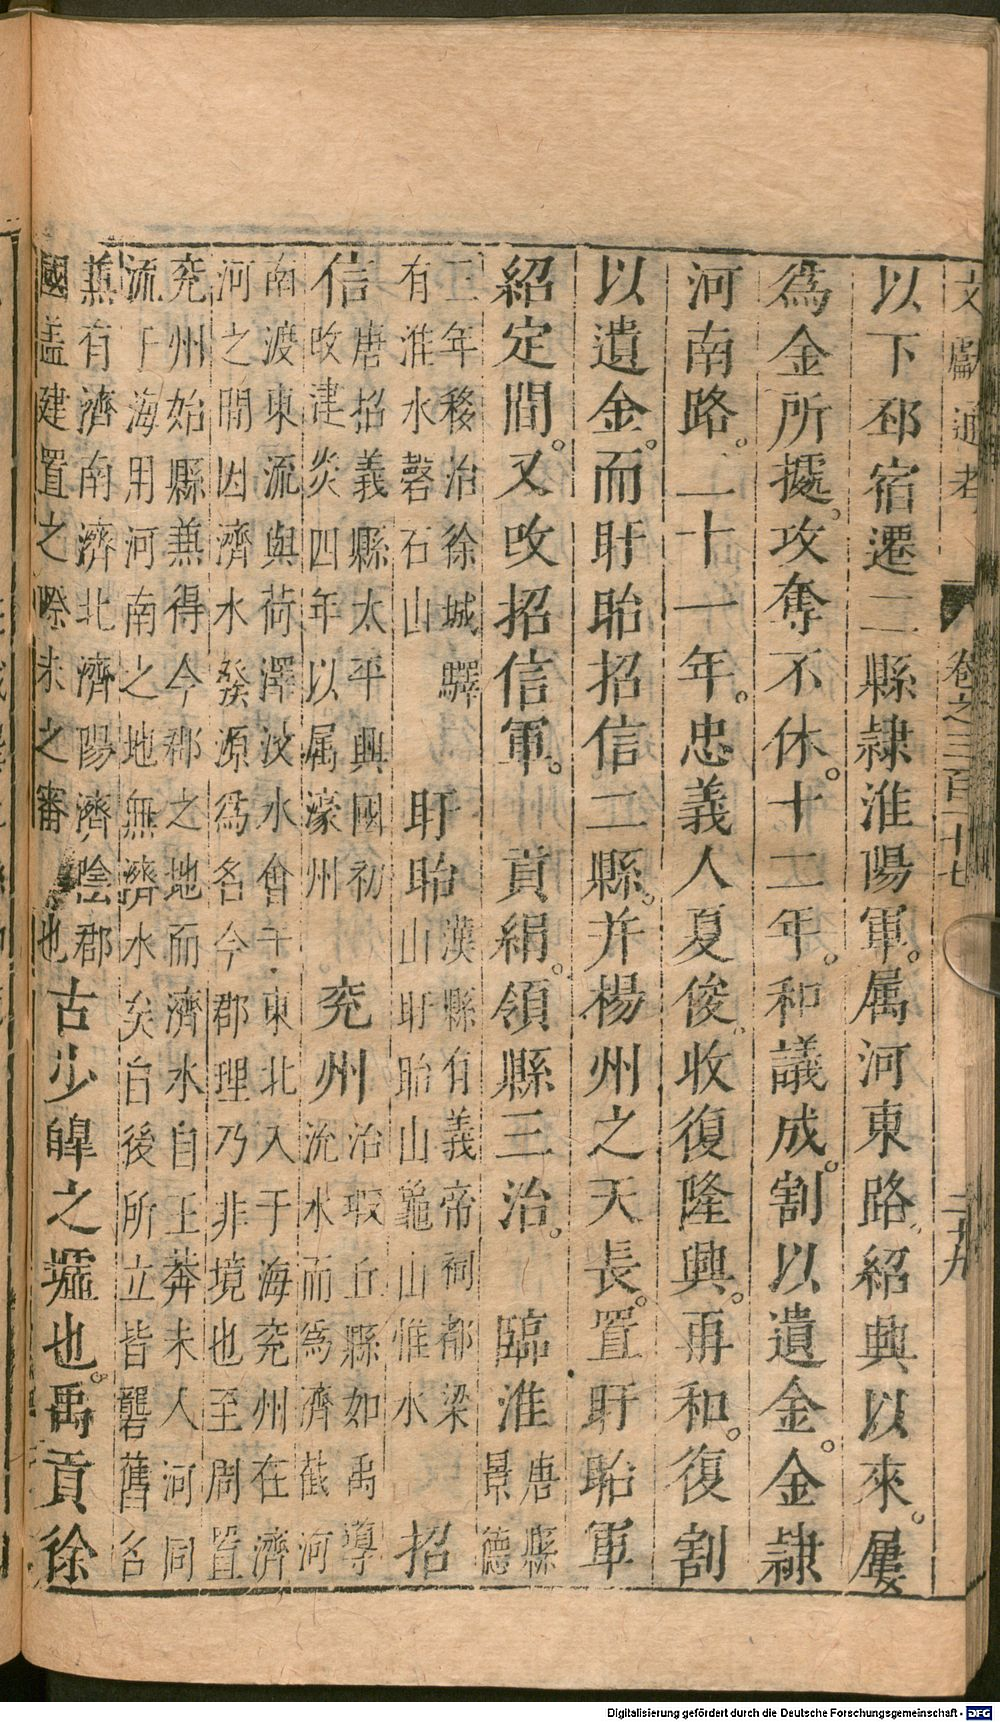 文獻通考 卷之三百一十七 二十九
以下邳宿遷二縣隷淮陽軍。属河東路紹興以來。屢
為金所擾。攻奪不休。十二年。和議成。割以遺金。金隷
河南路。三十一年。忠義人夏俊。收復隆興。再和。復割
以遺金。而盱眙招信二縣。并楊州之天長。置盱眙軍
紹定間。又改招信軍。 貢絹。領縣三治。 臨淮唐縣景德
三年移治徐城驛
有淮水磬石山 盱眙漢縣有義帝祠都梁
山盱眙山龜山惟水 招
信唐招義縣太平興國初
改建炎四年以属濠州 兖州治瑕丘縣如禹導
沇水而為濟截河
南渡東流與荷澤汶水會于東北入于海兖州在濟
河之間因濟水發源為名今郡理乃非境也至周置
兖州始縣兼得今郡之地而濟水自王莽末入河同
流于海用河南之地無濟水矣自後所立皆襲舊名
兼有濟南濟北濟陽濟陰郡
國盖建置之際未之審也 古少皡之墟也。禹貢徐
Digitalisierung gefördert durch die Deutsche Forschungsgemeinschaft - DFG